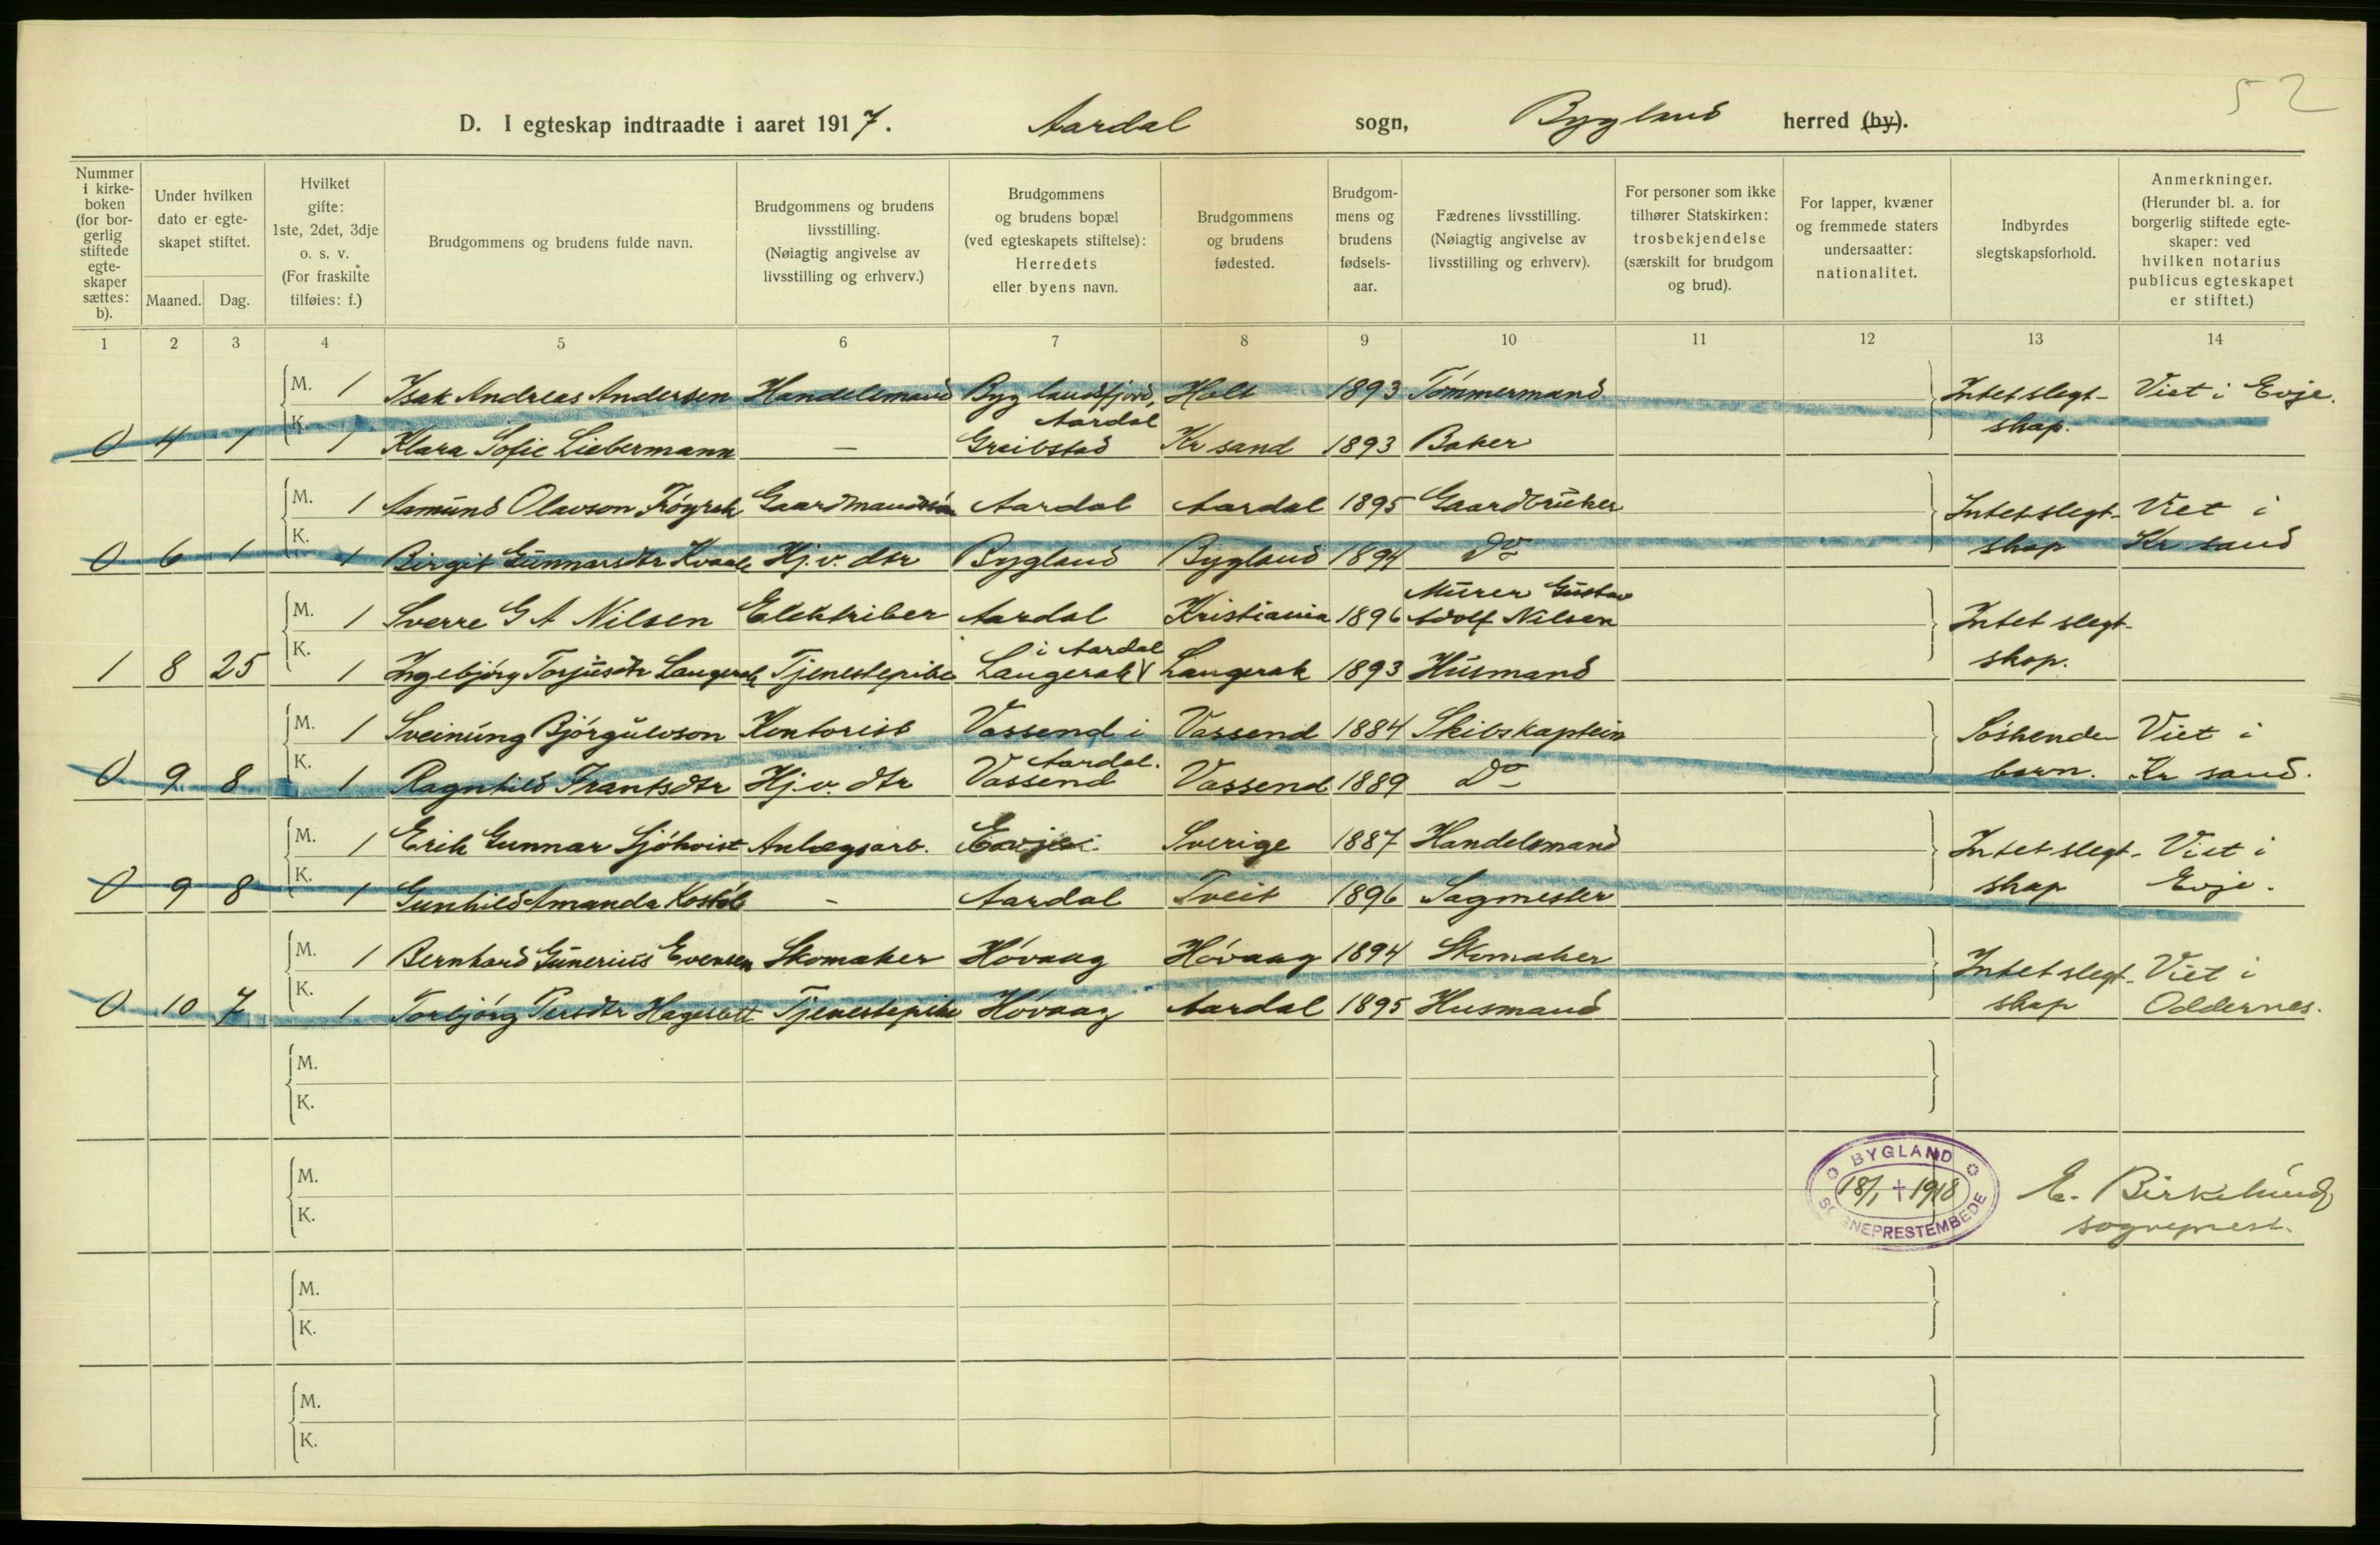 52
D. I egteskap indtraadte i aaret 1917. Aardal sogn, Bygland herred (by).
Nummer i kirke-boken (for bor-gerlig stiftede egte-skaper sættes: b).
Under hvilken dato er egte-skapet stiftet.
Maaned. Dag.
Hvilket gifte: 1ste, 2det, 3dje o. s. v. (For fraskilte tilføies: f.)
Brudgommens og brudens fulde navn.
Brudgommens og brudens livsstilling. (Nøiagtig angivelse av livsstilling og erhverv.)
Brudgommens og brudens bopæl (ved egteskapets stiftelse): Herredets eller byens navn.
Brudgommens og brudens fødested.
Brudgom-mens og brudens fødsels-aar.
Fædrenes livsstilling. (Nøiagtig angivelse av livsstilling og erhverv).
For personer som ikke tilhører Statskirken: trosbekjendelse (særskilt for brudgom og brud).
For lapper, kvæner og fremmede staters undersaatter: nationalitet.
Indbyrdes slegtskapsforhold.
Anmerkninger. (Herunder bl. a. for borgerlig stiftede egte-skaper: ved hvilken notarius publicus egteskapet er stiftet.)
1 2 3 4 5 6 7 8 9 10 11 12 13 14
M. 1 Isak Andreas Andersen Handelsmand Byglandsfjord, Aardal Holt 1893 Tømmermand Intet slegt- Viet i Evje.
0 4 1 K. 1 Klara Sofie Liebermann — Greibstad Kr sand 1893 Baker skap.
M. 1 Aamund Olavson Frøyrak Gaardmandssøn Aardal Aardal 1895 Gaardbruker Intet slegt- Viet i
0 6 1 K. 1 Birgit Gunnarsdtr Kvaale Hj. v. dtr Bygland Bygland 1894 Do skap Kr sand
M. 1 Sverre G A Nilsen Elektriker Aardal Kristiania 1896 Murer Gustav Adolf Nilsen Intet slegt-
1 8 25 K. 1 Ingebjørg Torjusdtr Langerak Tjenestepike Langerak i Aardal Langerak 1893 Husmand skap.
M. 1 Sveinung Bjørgulvson Kontorist Vassend i Aardal. Vassend 1884 Skibskaptein Søskende Viet i
0 9 8 K. 1 Ragnhild Frantsdtr Hj. v. dtr Vassend Vassend 1889 Do barn. Kr sand.
M. 1 Erik Gunnar Sjökvist Anlægsarb. Evje Sverige 1887 Handelsmand Intet slegt- Viet i
0 9 8 K. 1 Gunhild Amanda Kostøl - Aardal Tveit 1896 Sagmester skap Evje.
M. 1 Bernhard Gunerius Evensen Skomaker Høvaag Høvaag 1894 Skomaker Intet slegt- Viet i
0 10 7 K. 1 Torbjørg Persdtr Hageslett Tjenestepike Høvaag Aardal 1895 Husmand skap Oddernes.
M.
K.
M.
K.
BYGLAND
18/1 † 1918
SOGNEPRESTEMBEDE
E. Birkelund
sogneprest.
M.
K.
M.
K.